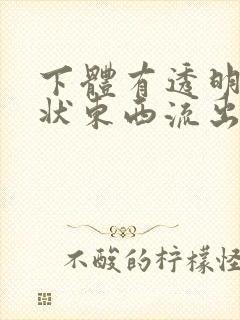 下體有透明
狀東西流出
不酸的柠檬怪